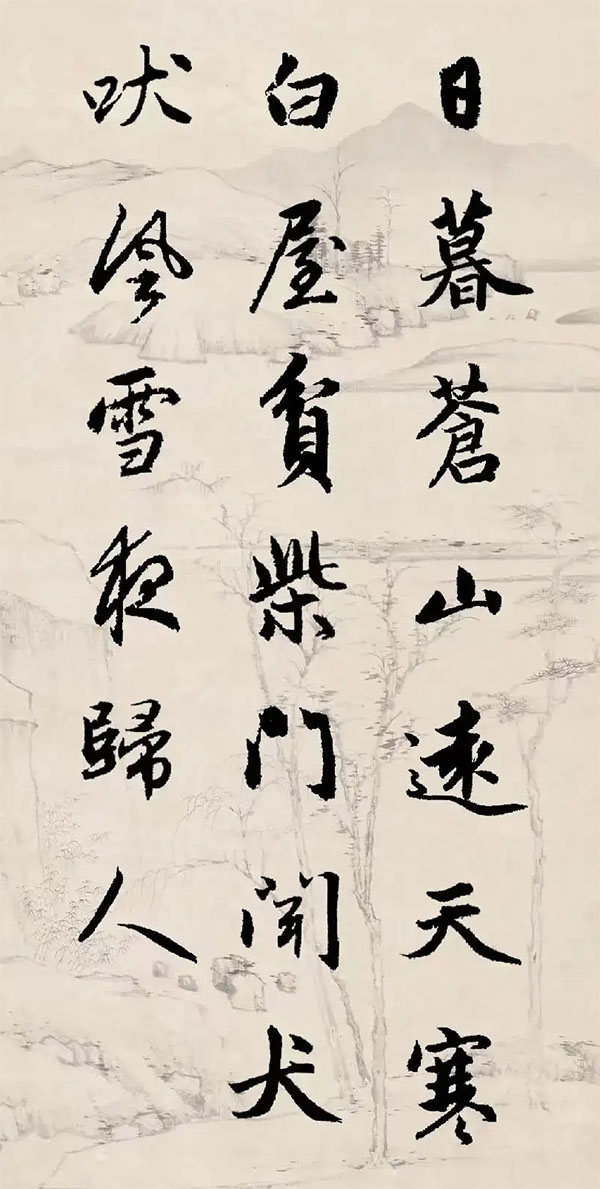 日暮蒼山遠天寒
白屋貧柴門聞犬
吠風雪夜歸人